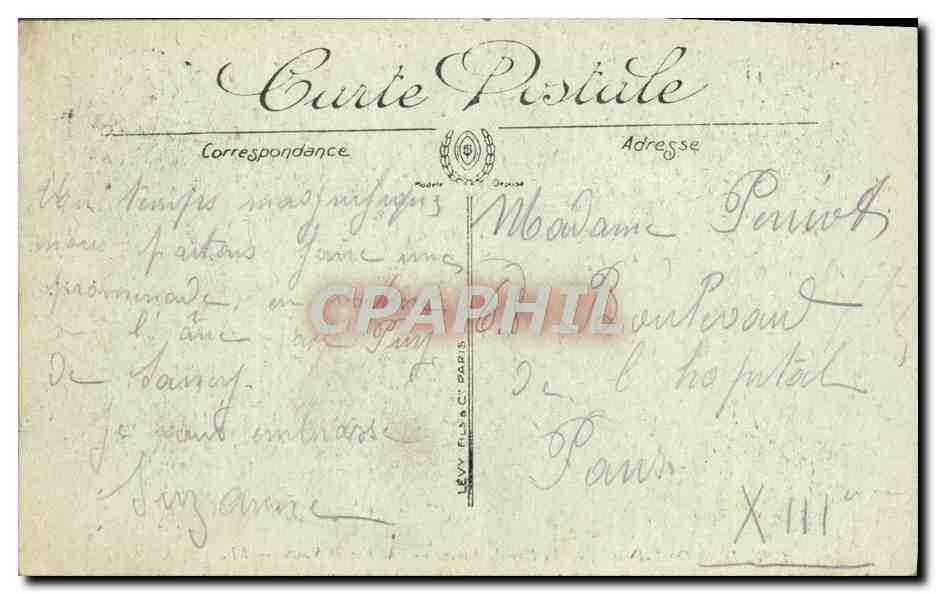 Carte Postale
Correspondance
Adresse
Modèle Déposé
temps magnifique
nous partons faire une
promenade, en
à l'âne au Puy
de Sancy.
Je vous embrasse
Suzanne
LÉVY FILS & Cie PARIS
Madame
Boulevard
de l'hopital
Paris
XIIIe
CPAPHIL